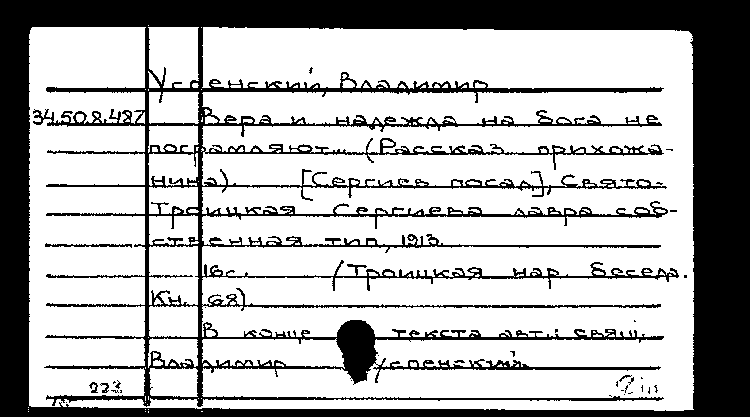 Успенский, Владимир
34.50.8.487 Вера и надежда на бога не
посрамляют... (Рассказ прихожа-
нина). [Сергиев посад], Свято-
Троицкая Сергиева лавра соб-
ственная тип., 1913.
16 с. (Троицкая нар. беседа.
Кн. 68).
В конце текста авт.: свящ.
Владимир Успенский.
223